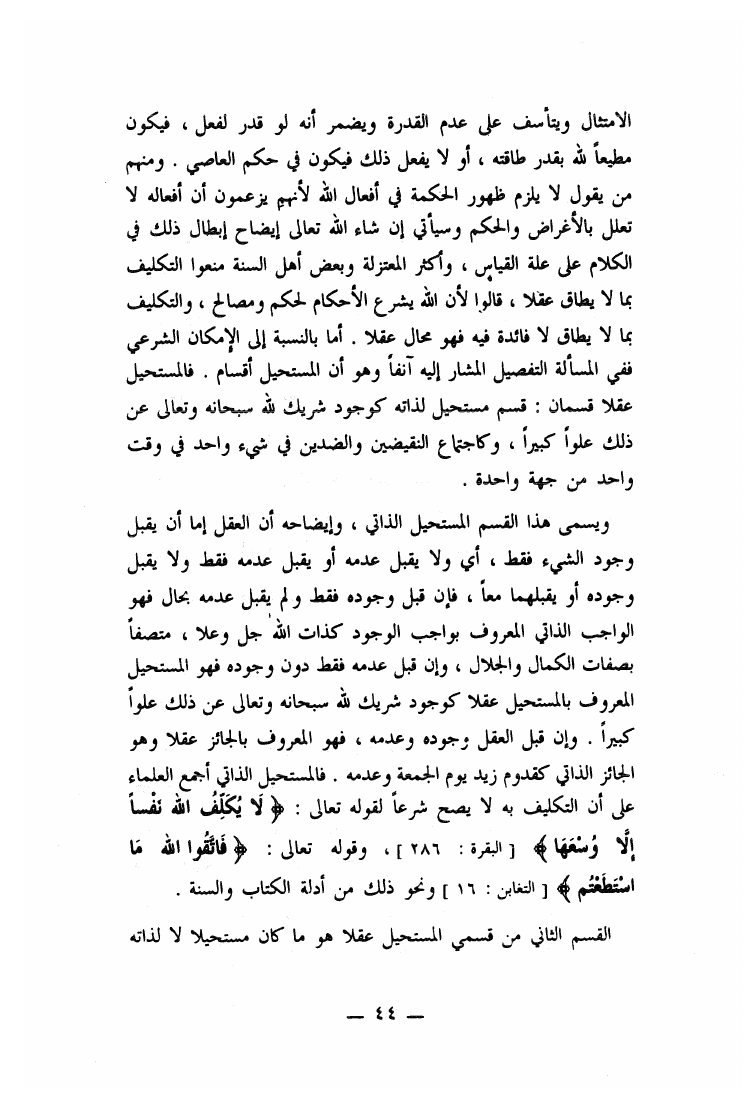 الامتثال ويتأسف على عدم القدرة ويضمر أنه لو قدر لفعل ، فيكون
مطيعاً لله بقدر طاقته ، أو لا يفعل ذلك فيكون في حكم العاصي . ومنهم
من يقول لا يلزم ظهور الحكمة في أفعال الله لأنهم يزعمون أن أفعاله لا
تعلل بالأغراض والحكم وسيأتي إن شاء الله تعالى إيضاح إبطال ذلك في
الكلام على علة القياس ، وأكثر المعتزلة وبعض أهل السنة منعوا التكليف
بما لا يطاق عقلا ، قالوا لأن الله يشرع الأحكام لحكم ومصالح ، والتكليف
بما لا يطاق لا فائدة فيه فهو محال عقلا . أما بالنسبة إلى الإمكان الشرعي
ففي المسألة التفصيل المشار إليه آنفاً وهو أن المستحيل أقسام . فالمستحيل
عقلا قسمان : قسم مستحيل لذاته كوجود شريك لله سبحانه وتعالى عن
ذلك علواً كبيراً ، وكاجتماع النقيضين والضدين في شيء واحد في وقت
واحد من جهة واحدة .
ويسمى هذا القسم المستحيل الذاتي ، وإيضاحه أن العقل إما أن يقبل
وجود الشيء فقط ، أي ولا يقبل عدمه أو يقبل عدمه فقط ولا يقبل
وجوده أو يقبلهما معاً ، فإن قبل وجوده فقط ولم يقبل عدمه بحال فهو
الواجب الذاتي المعروف بواجب الوجود كذات الله جل وعلا ، متصفاً
بصفات الكمال والجلال ، وإن قبل عدمه فقط دون وجوده فهو المستحيل
المعروف بالمستحيل عقلا كوجود شريك لله سبحانه وتعالى عن ذلك علواً
كبيراً . وإن قبل العقل وجوده وعدمه ، فهو المعروف بالجائز عقلا وهو
الجائز الذاتي كقدوم زيد يوم الجمعة وعدمه . فالمستحيل الذاتي أجمع العلماء
على أن التكليف به لا يصح شرعاً لقوله تعالى : ﴿ لَا يُكَلِّفُ الله نَفْساً
إِلَّا وُسْعَهَا ﴾ [ البقرة : ٢٨٦ ] ، وقوله تعالى : ﴿ فَاتَّقُوا الله مَا
اسْتَطَعْتُم ﴾ [ التغابن : ١٦ ] ونحو ذلك من أدلة الكتاب والسنة .
القسم الثاني من قسمي المستحيل عقلا هو ما كان مستحيلا لا لذاته
— ٤٤ —